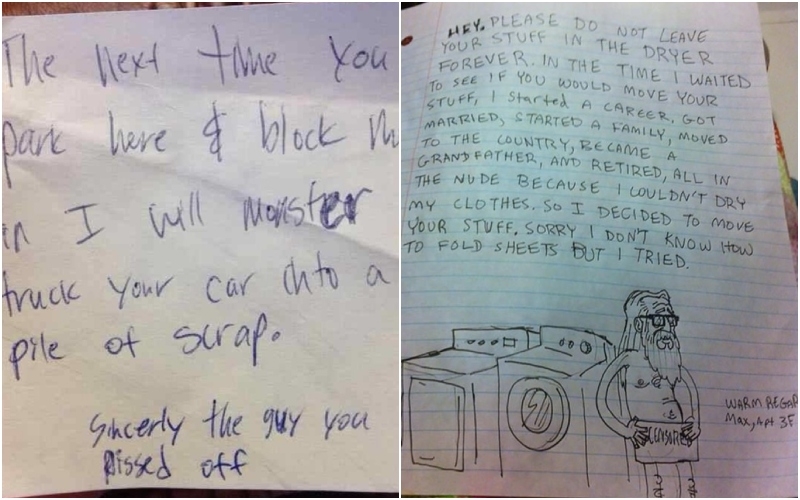 The next time you
park here & block m
in I will monster
truck your car into a
pile of scrap.
Sincerly the guy you
pissed off
HEY. PLEASE DO NOT LEAVE
YOUR STUFF IN THE DRYER
FOREVER. IN THE TIME I WAITED
TO SEE IF YOU WOULD MOVE YOUR
STUFF, I Started A CAREER, GOT
MARRIED, STARTED A FAMILY, MOVED
TO THE COUNTRY, BECAME A
GRANDFATHER, AND RETIRED, ALL IN
THE NUDE BECAUSE I COULDN'T DRY
MY CLOTHES. SO I DECIDED TO MOVE
YOUR STUFF. SORRY I DON'T KNOW HOW
TO FOLD SHEETS BUT I TRIED.
CENSORED
WARM REGAR
Max, Apt 3F